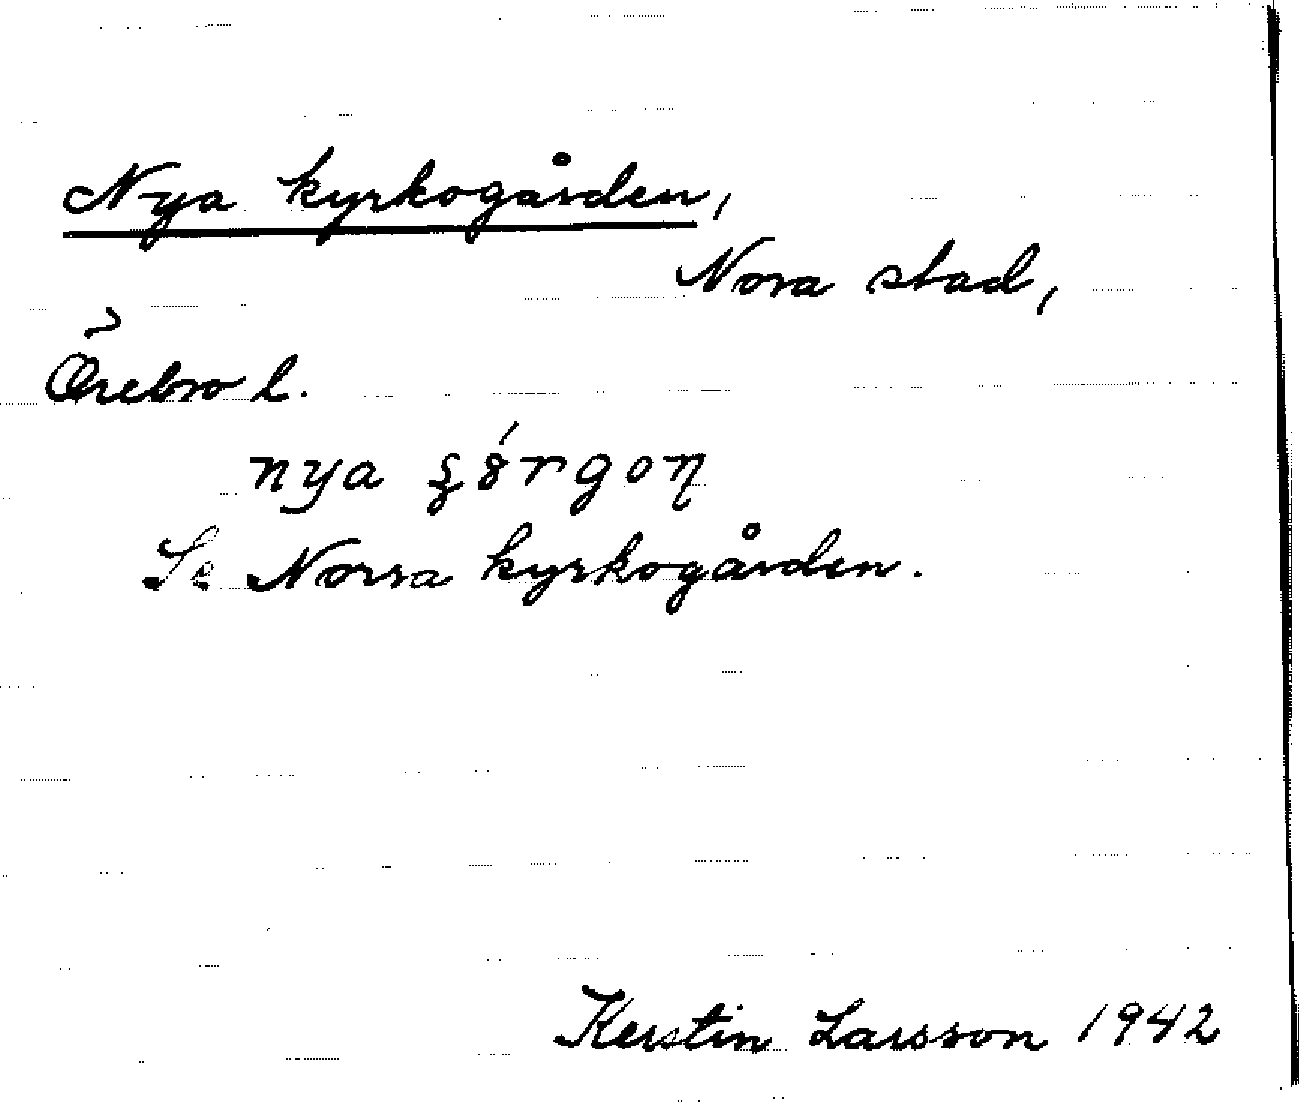 Nya kyrkogården,
Nora stad,
Örebro l.
nya
Se Norra kyrkogården.
Kerstin Larsson 1942